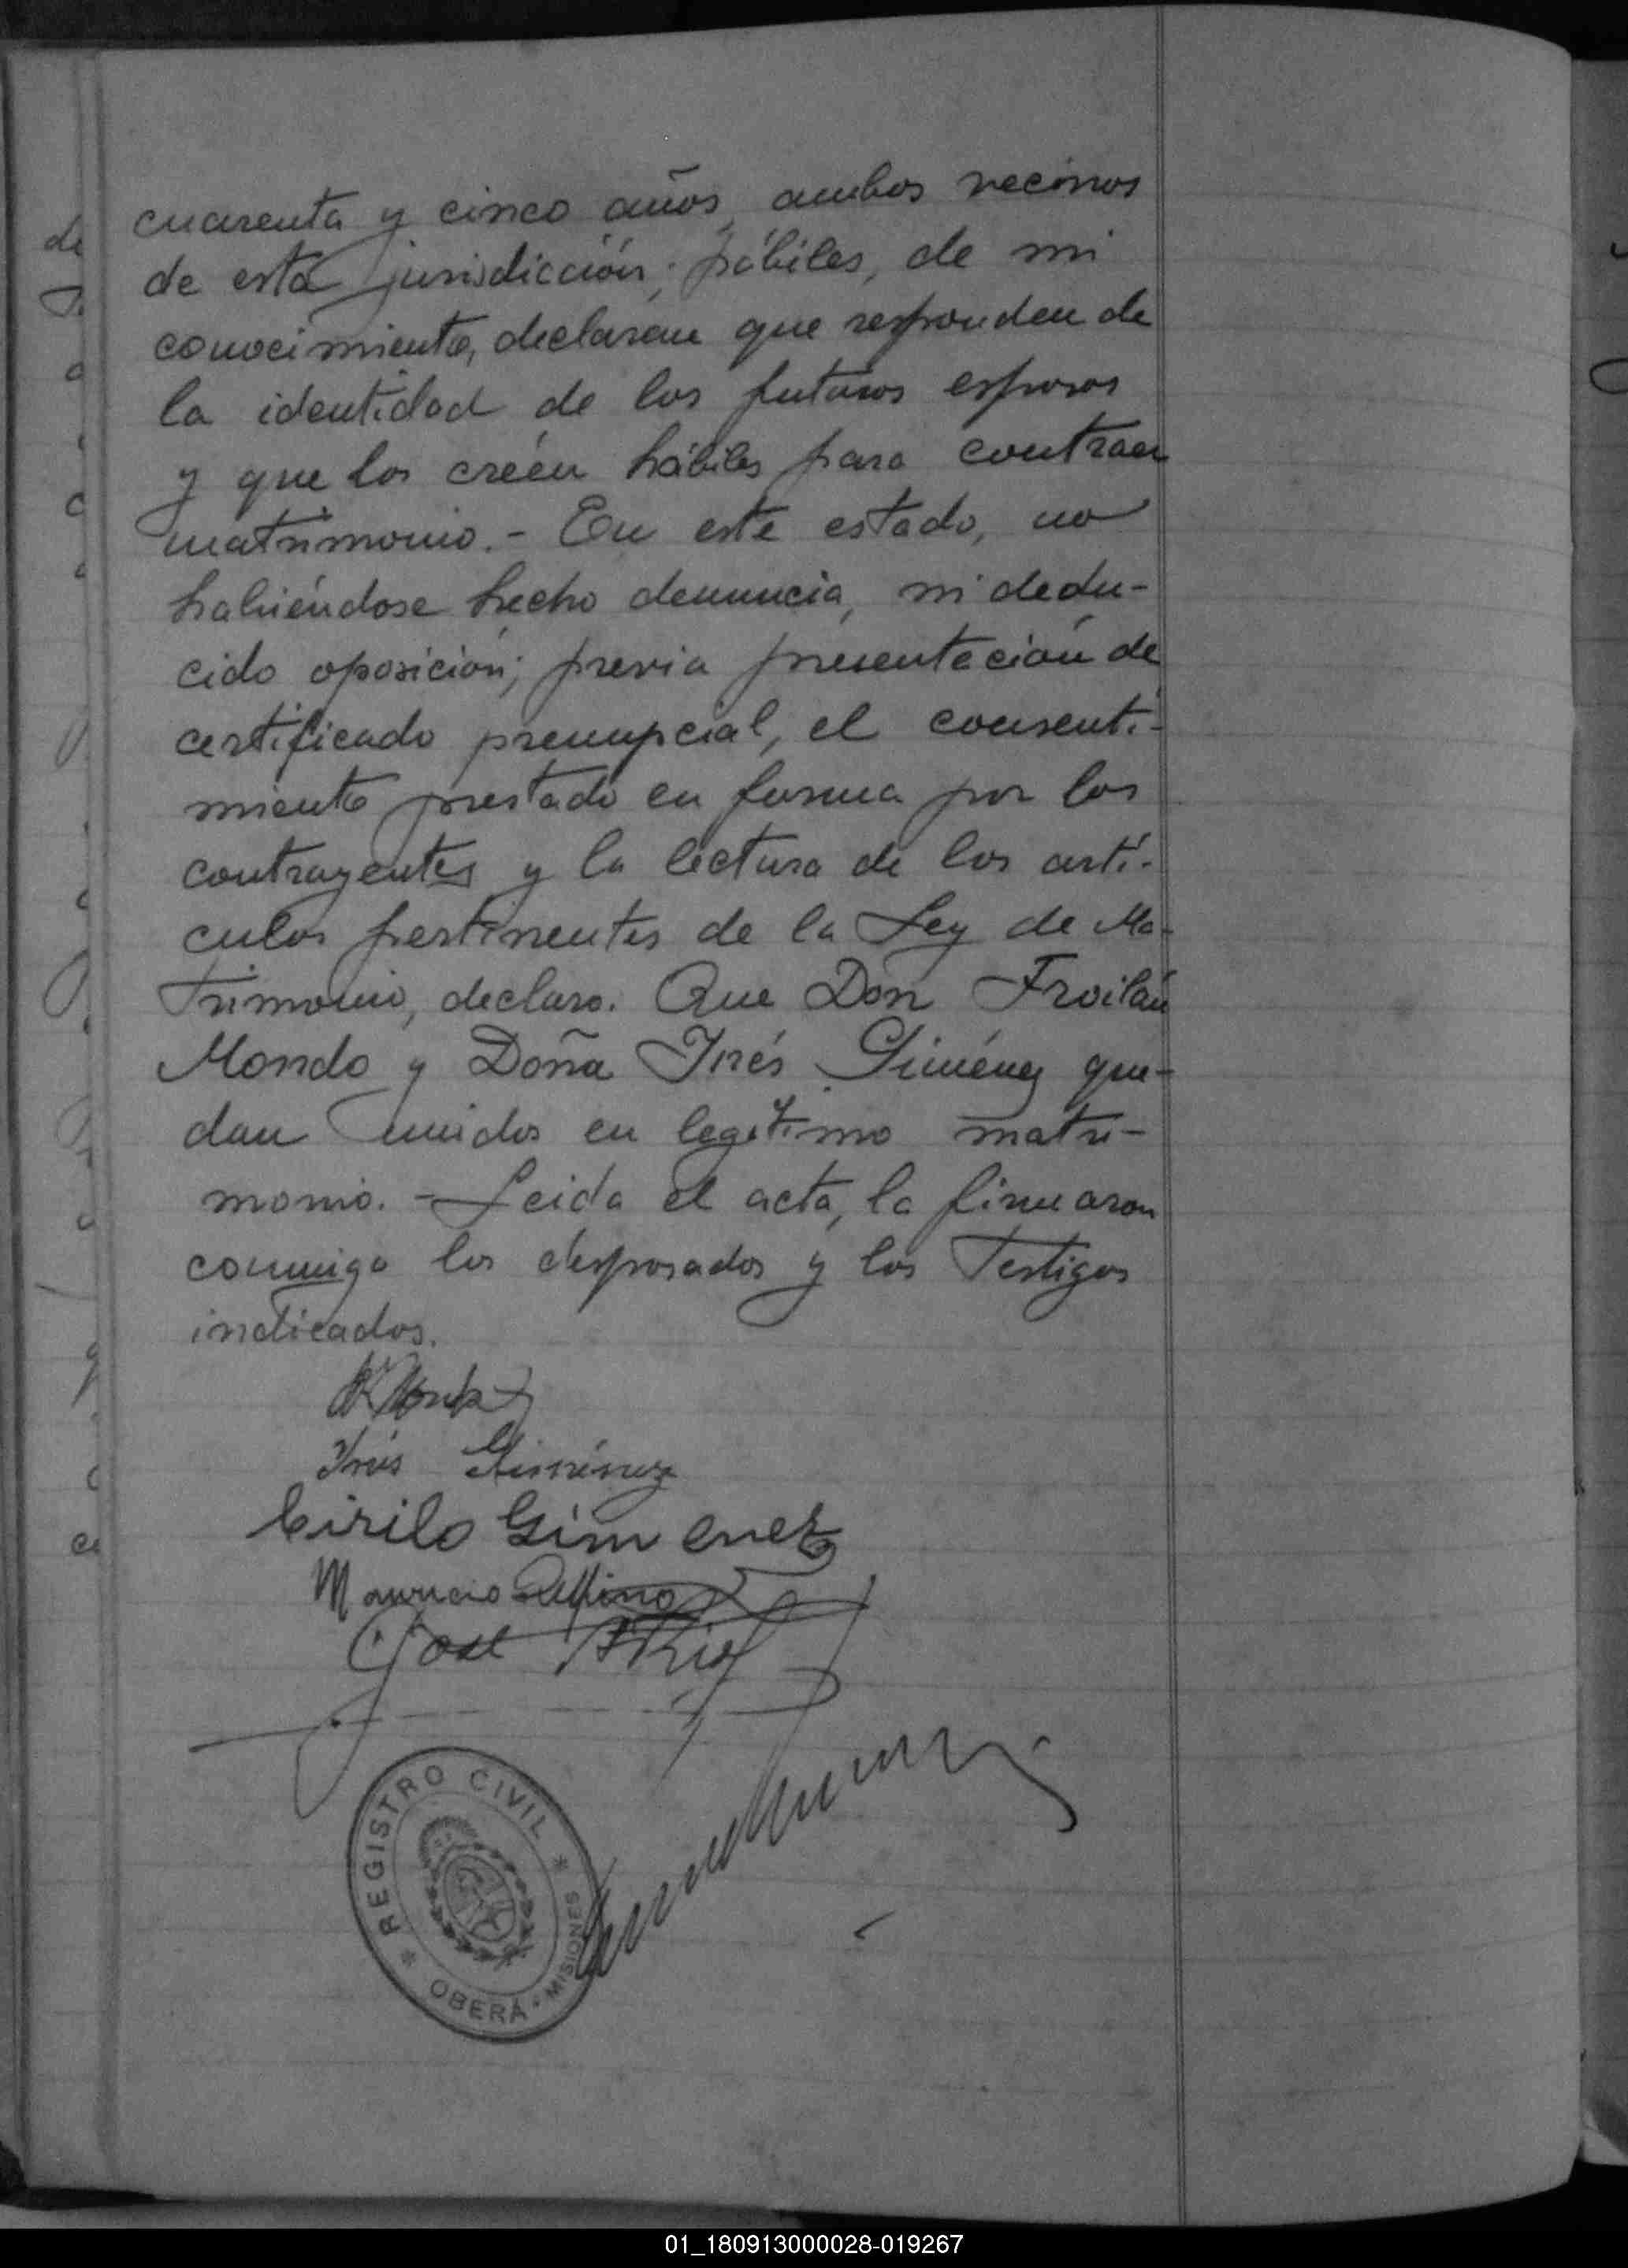 cuarenta y cinco años, ambos vecinos
de esta jurisdicción; hábiles, de mi
conocimiento, declaran que responden de
la identidad de los futuros esposos
y que los créen hábiles para contraer
matrimonio.- En este estado, no
habiéndose hecho denuncia, ni dedu-
cido oposición; previa presentación de
certificado prenupcial, el consenti-
miento prestado en forma por los
contrayentes y la lectura de los artí-
culos pertinentes de la Ley de Ma-
trimonio, declaro. Que Don Froilán
Mondo y Doña Inés Giménez que-
dan unidos en legítimo matri-
monio.- Leida el acta, la firmaron
conmigo los desposados y los Testigos
indicados.
Inés Giménez
Cirilo Gimenez
Mauricio
José
REGISTRO CIVIL
OBERÁ - MISIONES
01_180913000028-019267